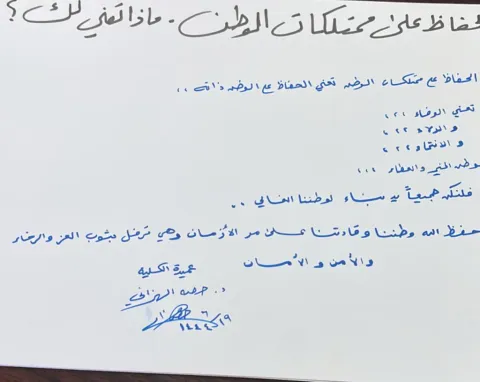 لحفاظ على ممتلكات الوطن . ماذا تعني لك ؟
الحفاظ على ممتلكات الوطن تعني الحفاظ على الوطن ذاته ..
تعني الوفاء ،،،
و الولاء ،،،
و الانتماء ،،،
وطن الخير والعطاء ...
فلنكن جميعاً يد بناء لوطننا الغالي ..
حفظ الله وطننا وقادتنا على مر الأزمان وهي ترفل بثوب العز والرخاء
والأمن و الأمان
عميدة الكلية
د. الهزاني